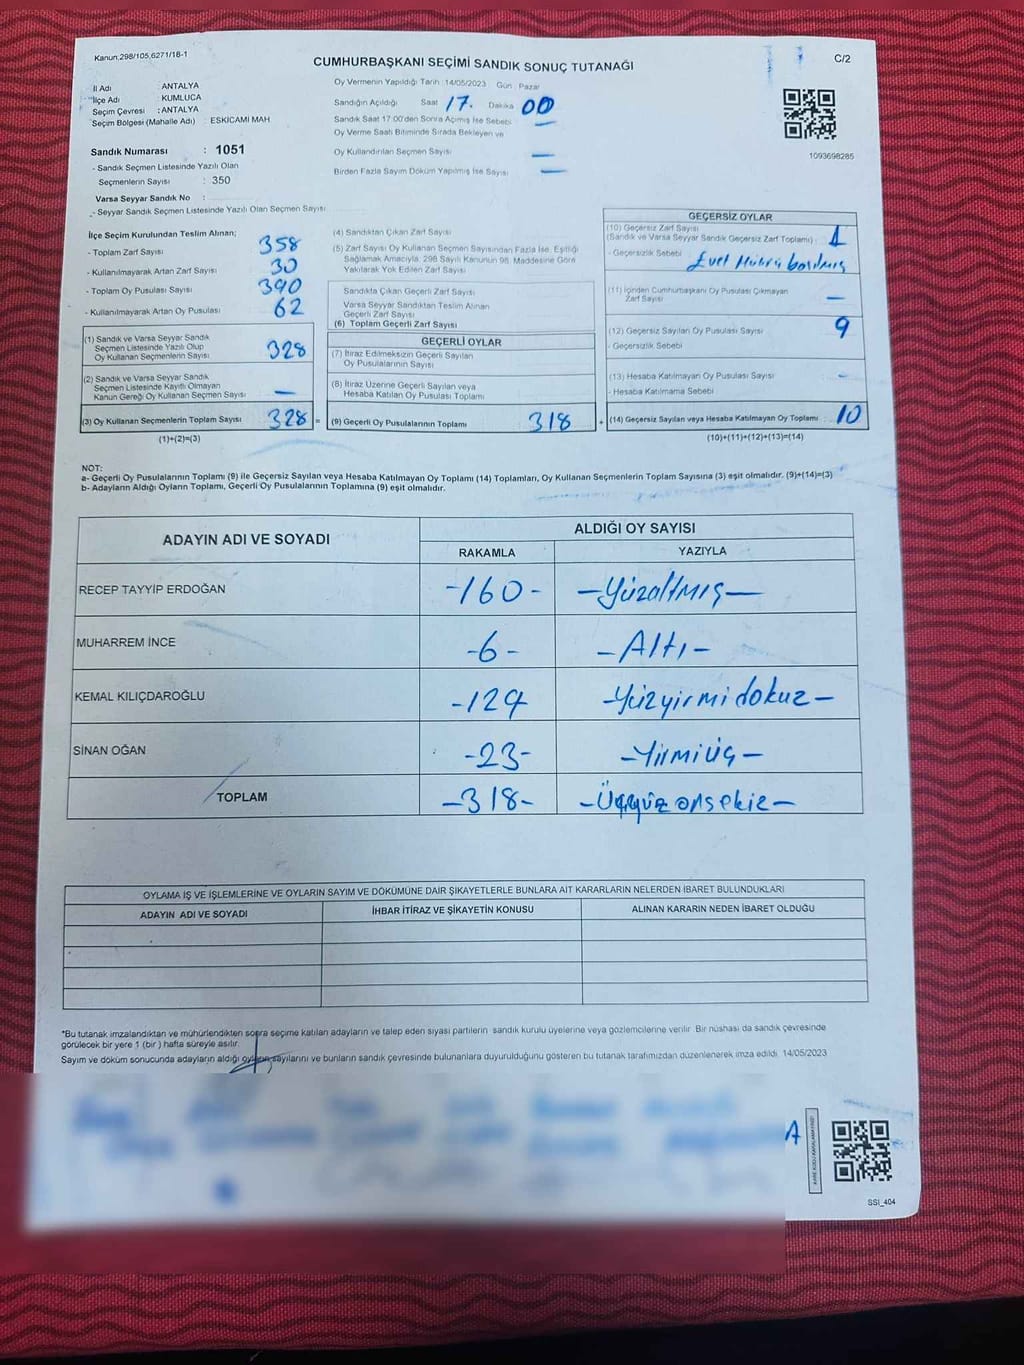 Kanun,298/105,6271/18-1
CUMHURBAŞKANI SEÇİMİ SANDIK SONUÇ TUTANAĞI
C/2
İl Adı : ANTALYA
İlçe Adı : KUMLUCA
Seçim Çevresi : ANTALYA
Seçim Bölgesi (Mahalle Adı) : ESKİCAMİ MAH
Sandık Numarası : 1051
- Sandık Seçmen Listesinde Yazılı Olan
Seçmenlerin Sayısı : 350
Varsa Seyyar Sandık No :
- Seyyar Sandık Seçmen Listesinde Yazılı Olan Seçmen Sayısı
Oy Vermenin Yapıldığı Tarih : 14/05/2023 Gün : Pazar
Sandığın Açıldığı Saat 17. Dakika 00
Sandık Saat 17:00'den Sonra Açılmış İse Sebebi —
Oy Verme Saati Bitiminde Sırada Bekleyen ve
Oy Kullandırılan Seçmen Sayısı —
Birden Fazla Sayım Döküm Yapılmış İse Sayısı —
1093698285
İlçe Seçim Kurulundan Teslim Alınan;
- Toplam Zarf Sayısı 358
- Kullanılmayarak Artan Zarf Sayısı 30
- Toplam Oy Pusulası Sayısı 390
- Kullanılmayarak Artan Oy Pusulası 62
(1) Sandık ve Varsa Seyyar Sandık
Seçmen Listesinde Yazılı Olup
Oy Kullanan Seçmenlerin Sayısı 328
(2) Sandık ve Varsa Seyyar Sandık
Seçmen Listesinde Kayıtlı Olmayan
Kanun Gereği Oy Kullanan Seçmen Sayısı —
(3) Oy Kullanan Seçmenlerin Toplam Sayısı 328 =
(1)+(2)=(3)
(4) Sandıktan Çıkan Zarf Sayısı
(5) Zarf Sayısı Oy Kullanan Seçmen Sayısından Fazla İse, Eşitliği
Sağlamak Amacıyla, 298 Sayılı Kanunun 98. Maddesine Göre
Yakılarak Yok Edilen Zarf Sayısı
Sandıkta Çıkan Geçerli Zarf Sayısı
Varsa Seyyar Sandıktan Teslim Alınan
Geçerli Zarf Sayısı
(6) Toplam Geçerli Zarf Sayısı
GEÇERLİ OYLAR
(7) İtiraz Edilmeksizin Geçerli Sayılan
Oy Pusulalarının Sayısı
(8) İtiraz Üzerine Geçerli Sayılan veya
Hesaba Katılan Oy Pusulası Toplamı
(9) Geçerli Oy Pusulalarının Toplamı 318 +
GEÇERSİZ OYLAR
(10) Geçersiz Zarf Sayısı
(Sandık ve Varsa Seyyar Sandık Geçersiz Zarf Toplamı) : 1
- Geçersizlik Sebebi Evet Mührü basılmış
(11) İçinden Cumhurbaşkanı Oy Pusulası Çıkmayan
Zarf Sayısı —
(12) Geçersiz Sayılan Oy Pusulası Sayısı 9
- Geçersizlik Sebebi
(13) Hesaba Katılmayan Oy Pusulası Sayısı -
- Hesaba Katılmama Sebebi
(14) Geçersiz Sayılan veya Hesaba Katılmayan Oy Toplamı : 10
(10)+(11)+(12)+(13)=(14)
NOT:
a- Geçerli Oy Pusulalarının Toplamı (9) ile Geçersiz Sayılan veya Hesaba Katılmayan Oy Toplamı (14) Toplamları, Oy Kullanan Seçmenlerin Toplam Sayısına (3) eşit olmalıdır. (9)+(14)=(3)
b- Adayların Aldığı Oyların Toplamı, Geçerli Oy Pusulalarının Toplamına (9) eşit olmalıdır.
ADAYIN ADI VE SOYADI ALDIĞI OY SAYISI
RAKAMLA YAZIYLA
RECEP TAYYİP ERDOĞAN -160- -Yüzaltmış-
MUHARREM İNCE -6- -Altı-
KEMAL KILIÇDAROĞLU -129 -Yüzyirmi dokuz-
SİNAN OĞAN -23- -Yirmiüç-
TOPLAM -318- -Üçyüz onsekiz-
OYLAMA İŞ VE İŞLEMLERİNE VE OYLARIN SAYIM VE DÖKÜMÜNE DAİR ŞİKAYETLERLE BUNLARA AİT KARARLARIN NELERDEN İBARET BULUNDUKLARI
ADAYIN ADI VE SOYADI İHBAR İTİRAZ VE ŞİKAYETİN KONUSU ALINAN KARARIN NEDEN İBARET OLDUĞU
*Bu tutanak imzalandıktan ve mühürlendikten sonra seçime katılan adayların ve talep eden siyasi partilerin sandık kurulu üyelerine veya gözlemcilerine verilir. Bir nüshası da sandık çevresinde
görülecek bir yere 1 (bir) hafta süreyle asılır.
Sayım ve döküm sonucunda adayların aldığı oyların sayılarını ve bunların sandık çevresinde bulunanlara duyurulduğunu gösteren bu tutanak tarafımızdan düzenlenerek imza edildi. 14/05/2023
A
SSİ_404